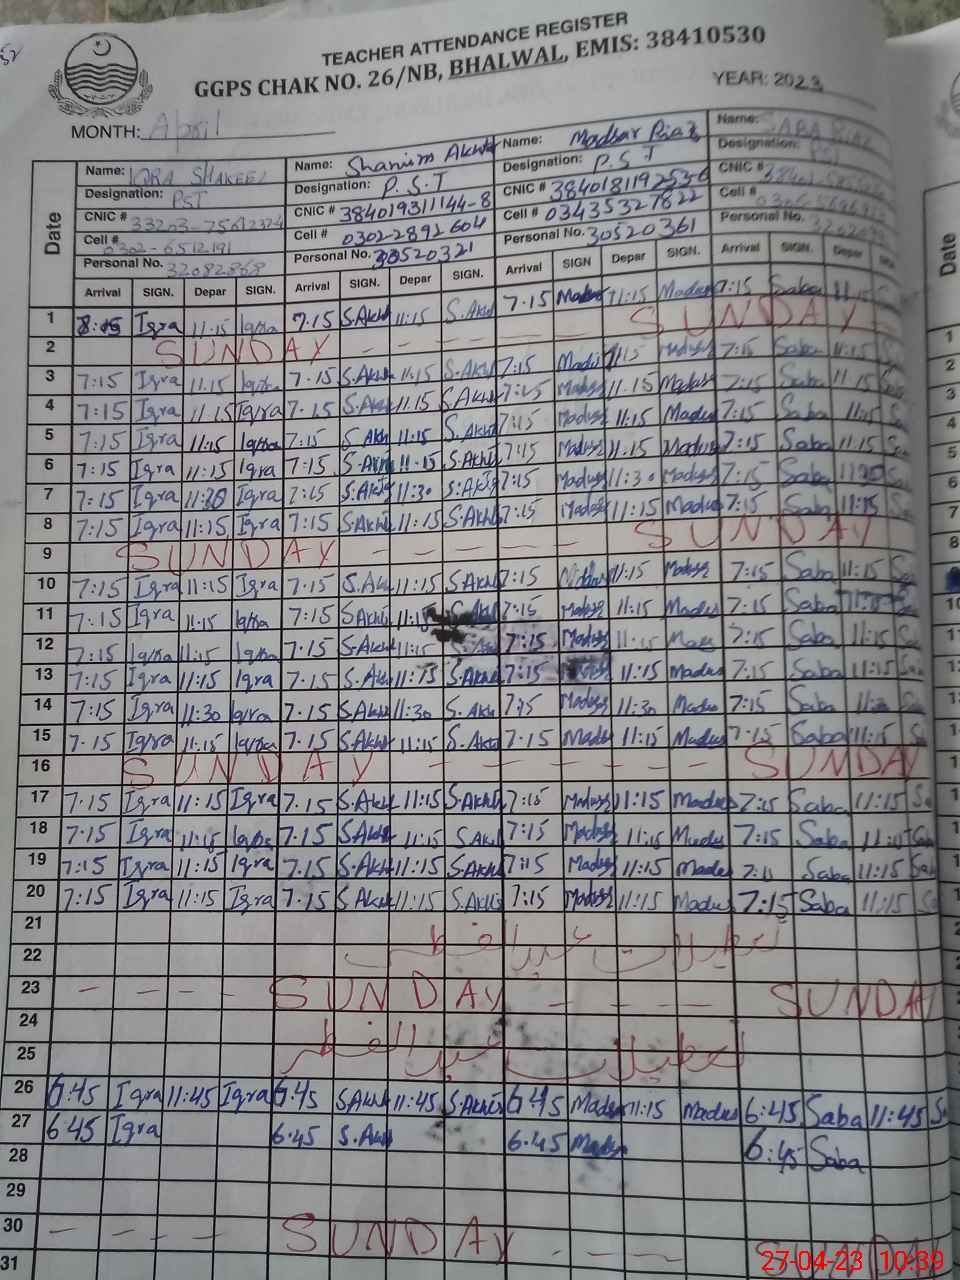 TEACHER ATTENDANCE REGISTER
GGPS CHAK NO. 26/NB, BHALWAL, EMIS: 38410530
MONTH: April YEAR: 2023
Date
Name: IQRA SHAKEEL Name: Shamim Akhtar Name: Madsar Riaz Name: SABA RIAZ
Designation: PST Designation: P.S.T Designation: P.S.T Designation: PST
CNIC # CNIC # 384019311144-8 CNIC # CNIC #
Cell # 0302-6512191 Cell # 0302-2892604 Cell # 03435327822 Cell #
Personal No. 32082868 Personal No. 30520321 Personal No. 30520361 Personal No.
Arrival SIGN. Depar SIGN. Arrival SIGN. Depar SIGN. Arrival SIGN Depar SIGN. Arrival SIGN. Depar
1 Iqra 11.15 Iqra 7.15 S.Akh 11:15 S.Akh 7.15 11:15 7:15 Saba 11:15
2 SUNDAY - - - - - SUNDAY
3 7:15 Iqra 11.15 Iqra 7.15 S.Akh 11:15 S.Akh 7:15 Madsr 11:15 Madsr 7:15 Saba 11:15
4 7:15 Iqra 11.15 Iqra 7.15 S.Akh 11.15 S.Akh 7:15 Madsr 11.15 Madsr 7:15 Saba 11:15
5 7:15 Iqra 11:15 Iqra 7:15 S.Akh 11:15 S.Akh 7:15 Madsr 11:15 Madsr 7:15 Saba 11:15
6 7:15 Iqra 11:15 Iqra 7:15 S.Akh 11.15 S.Akht 7:15 Madsr 11.15 Madsr 7:15 Saba 11:15
7 7:15 Iqra 11:30 Iqra 7:15 S.Akht 11:30 S.Akht 7:15 Madsr 11:30 Madsr 7:15 Saba
8 7:15 Iqra 11:15 Iqra 7:15 S.Akht 11:15 S.Akht 7:15 Madsr 11:15 Madsr 7:15 Saba 11:15
9 SUNDAY - - - - - SUNDAY
10 7:15 Iqra 11:15 Iqra 7.15 S.Akh 11:15 S.Akh 7:15 11:15 Madsr 7:15 Saba 11:15
11 7:15 Iqra 11:15 Iqra 7:15 S.Akht 7:15 Madsr 11:15 Madsr 7:15 Saba 11:15
12 7:15 Iqra 11:15 Iqra 7.15 S.Akh 11:15 7:15 Madsr 11:15 7:15 Saba 11:15
13 7:15 Iqra 11:15 Iqra 7.15 S.Akh 11:15 S.Akh 7:15 11:15 Madsr 7:15 Saba 11:15
14 7:15 Iqra 11:30 Iqra 7.15 S.Akh 11:30 S.Akh 7:15 Madsr 11:30 Madsr 7:15 Saba
15 7.15 Iqra 11:15 Iqra 7.15 S.Akh 11:15 S.Akh 7.15 Madsr 11:15 Madsr 7:15 Saba 11:15
16 SUNDAY - - - - - - SUNDAY
17 7.15 Iqra 11:15 Iqra 7.15 S.Akh 11:15 S.Akht 7:15 Madsr 11:15 Madsr 7:15 Saba 11:15
18 7:15 Iqra 11:15 Iqra 7.15 S.Akh 11:15 S.Akh 7:15 Madsr 11:15 Madsr 7:15 Saba 11:15
19 7:15 Iqra 11:15 Iqra 7.15 S.Akh 11:15 S.Akh 7:15 Madsr 11:15 Madsr Saba 11:15
20 7:15 Iqra 11:15 Iqra 7.15 S.Akh 11:15 S.Akht 7:15 Madsr 11:15 Madsr 7:15 Saba 11:15
21 تعطیلات عیدالفطر
22
23 - - - - SUNDAY - - - - SUNDAY
24 تعطیلات عیدالفطر
25
26 6:45 Iqra 11:45 Iqra 6:45 S.Akh 11:45 S.Akht 6:45 Madsr 11:15 Madsr 6:45 Saba 11:45
27 6:45 Iqra 6.45 S.Akh 6.45 Madsr 6:45 Saba
28
29
30 - - - - SUNDAY - - - SUNDAY
31
27-04-23 10:39